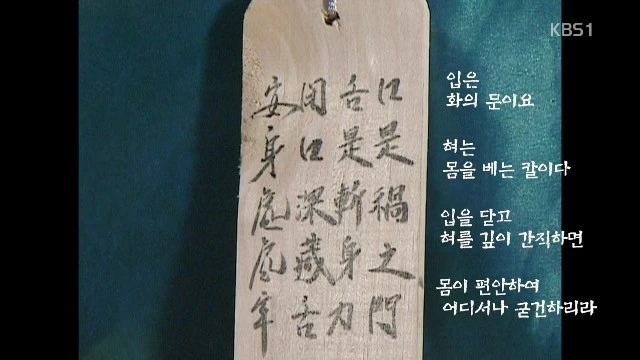 KBS1
口是禍之門
舌是斬身刀
閉口深藏舌
安身處處牢
입은
화의 문이요
혀는
몸을 베는 칼이다
입을 닫고
혀를 깊이 간직하면
몸이 편안하여
어디서나 굳건하리라